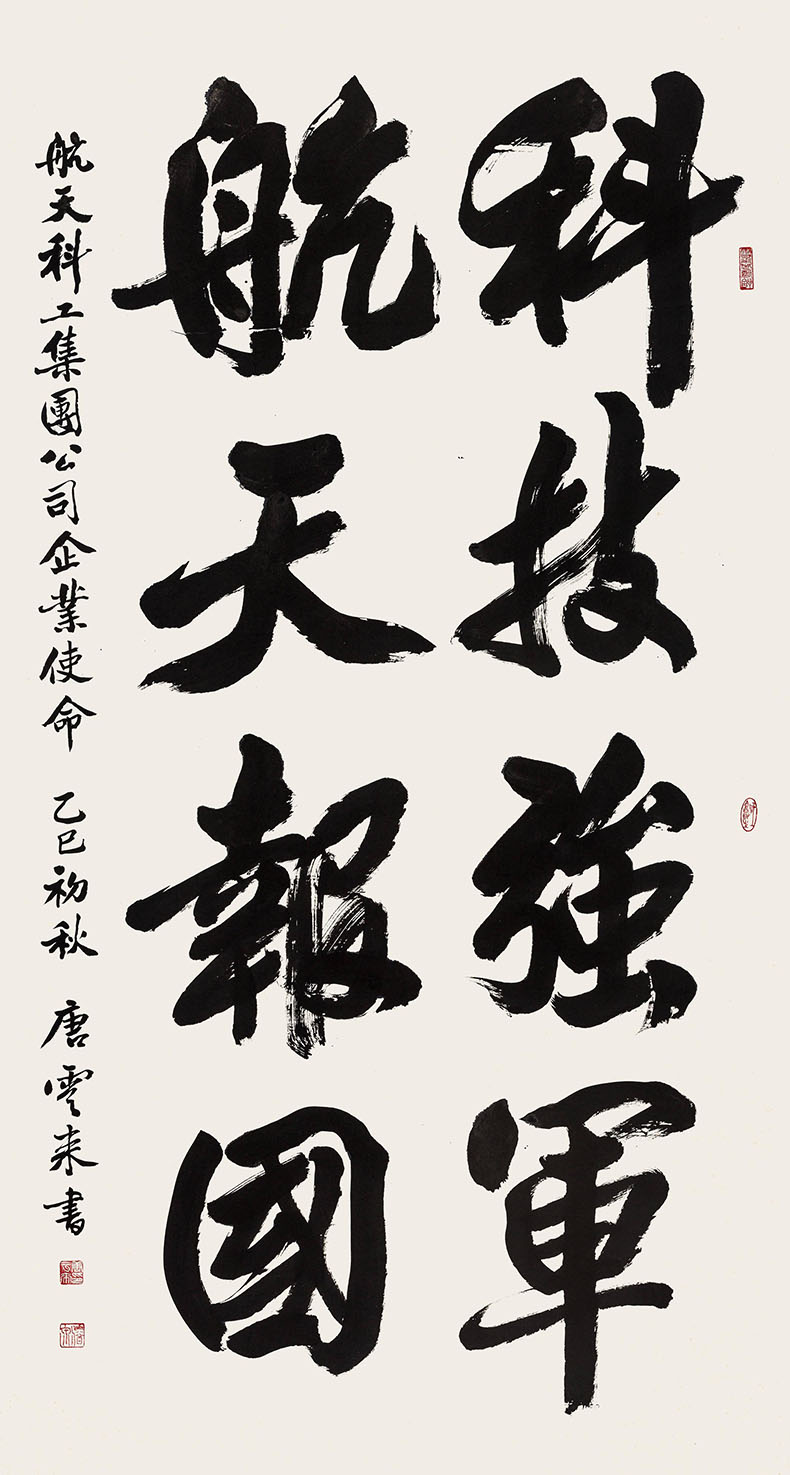 科技強軍
航天報國
航天科工集團公司企業使命 乙巳初秋 唐雲来書